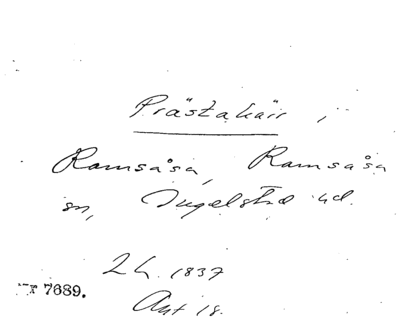 Prästakärr,
Ramsåsa, Ramsåsa
sn, Ingelstad hd.
Lh. 1837
Akt 18.
7689.